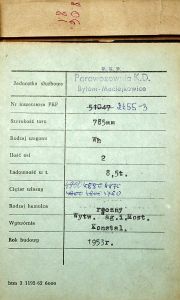 81
806
P. K. P.
Jednostka służbowa Parowozownia K.D.
Bytom-Maciejkowice
Nr inwentarza PKP 51047 2455-3
Szerokość toru 785mm
Rodzaj wagonu Wh
Ilość osi 2
Ładowność w t. 8,5t.
Ciężar własny
Rodzaj hamulca ręczny
Wytwórnia Wytw. Sg.i.Most.
Konstal.
Rok budowy 1953r.